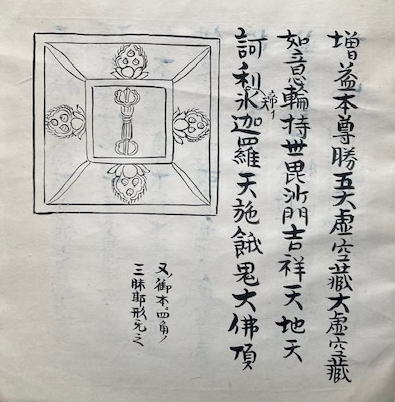 増益本尊勝五大虚空藏大虚空藏
如意輪持世毘沙門吉祥天地天
訶利氷迦羅天施餓鬼大佛頂
又御本四角ノ
三昧耶形无之